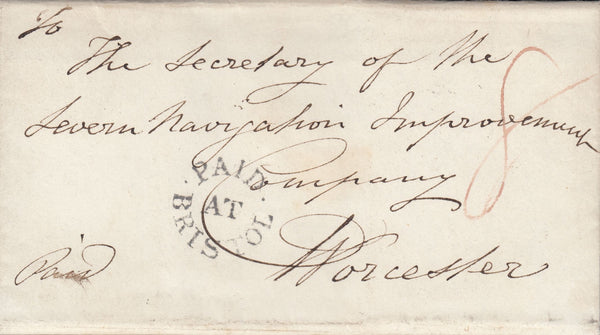 To
The Secretary of the
Severn Navigation Improvement
Company
Worcester
PAID AT BRISTOL
Paid
8